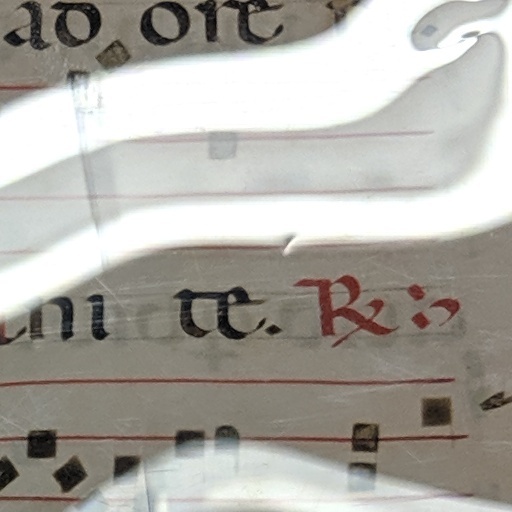 ad ore
ni te. ℟: